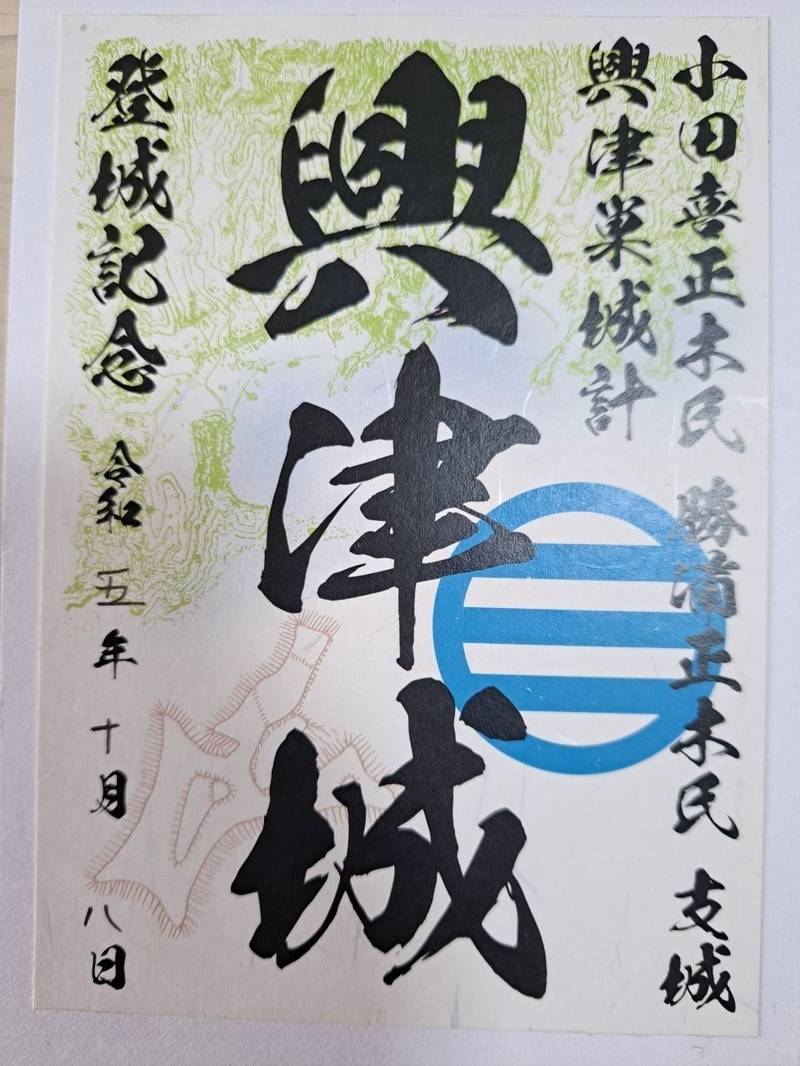 小田喜正木氏 勝浦正木氏 支城
興津巣城計
興津城
登城記念 令和 五年 十月 八日